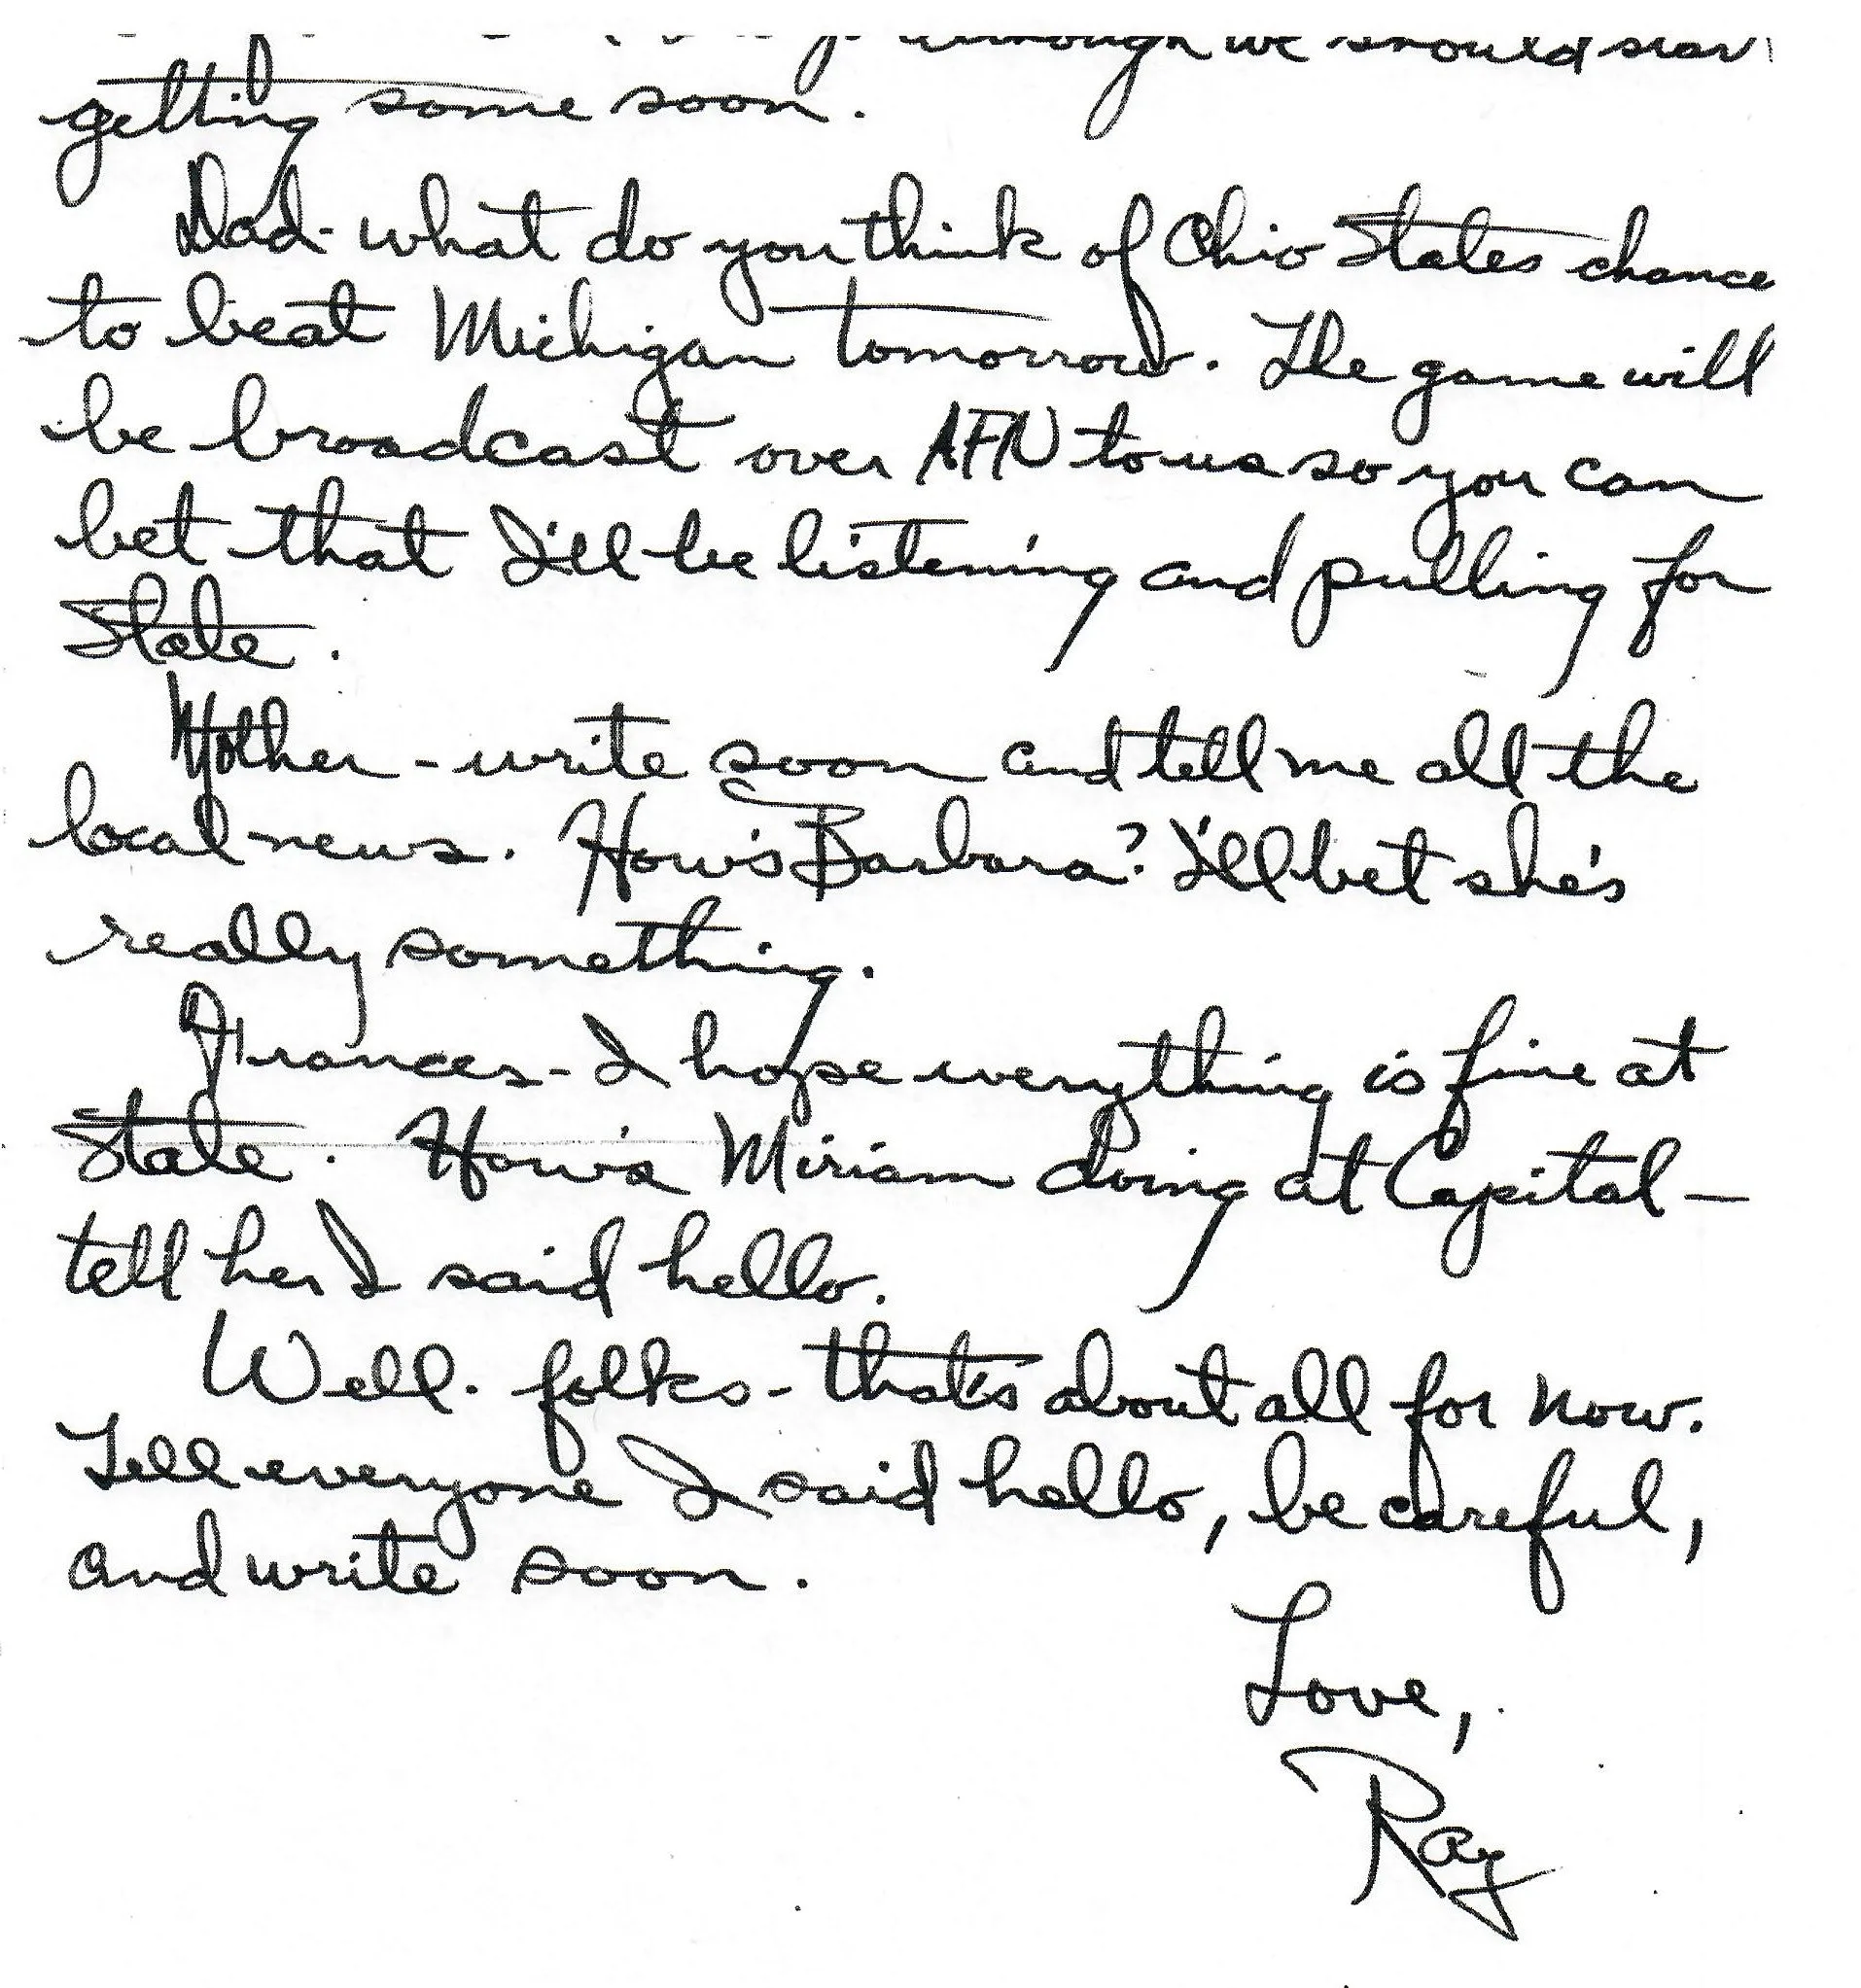 although we should start
getting some soon.
Dad - what do you think of Ohio States chance
to beat Michigan tomorrow. The game will
be broadcast over AFN to us so you can
bet that I'll be listening and pulling for
State.
Mother - write soon and tell me all the
local news. How's Barbara? I'll bet she's
really something.
Frances - I hope everything is fine at
State. How's Miriam doing at Capital —
tell her I said hello.
Well - folks - that's about all for now.
Tell everyone I said hello, be careful,
and write soon.
Love,
Ray